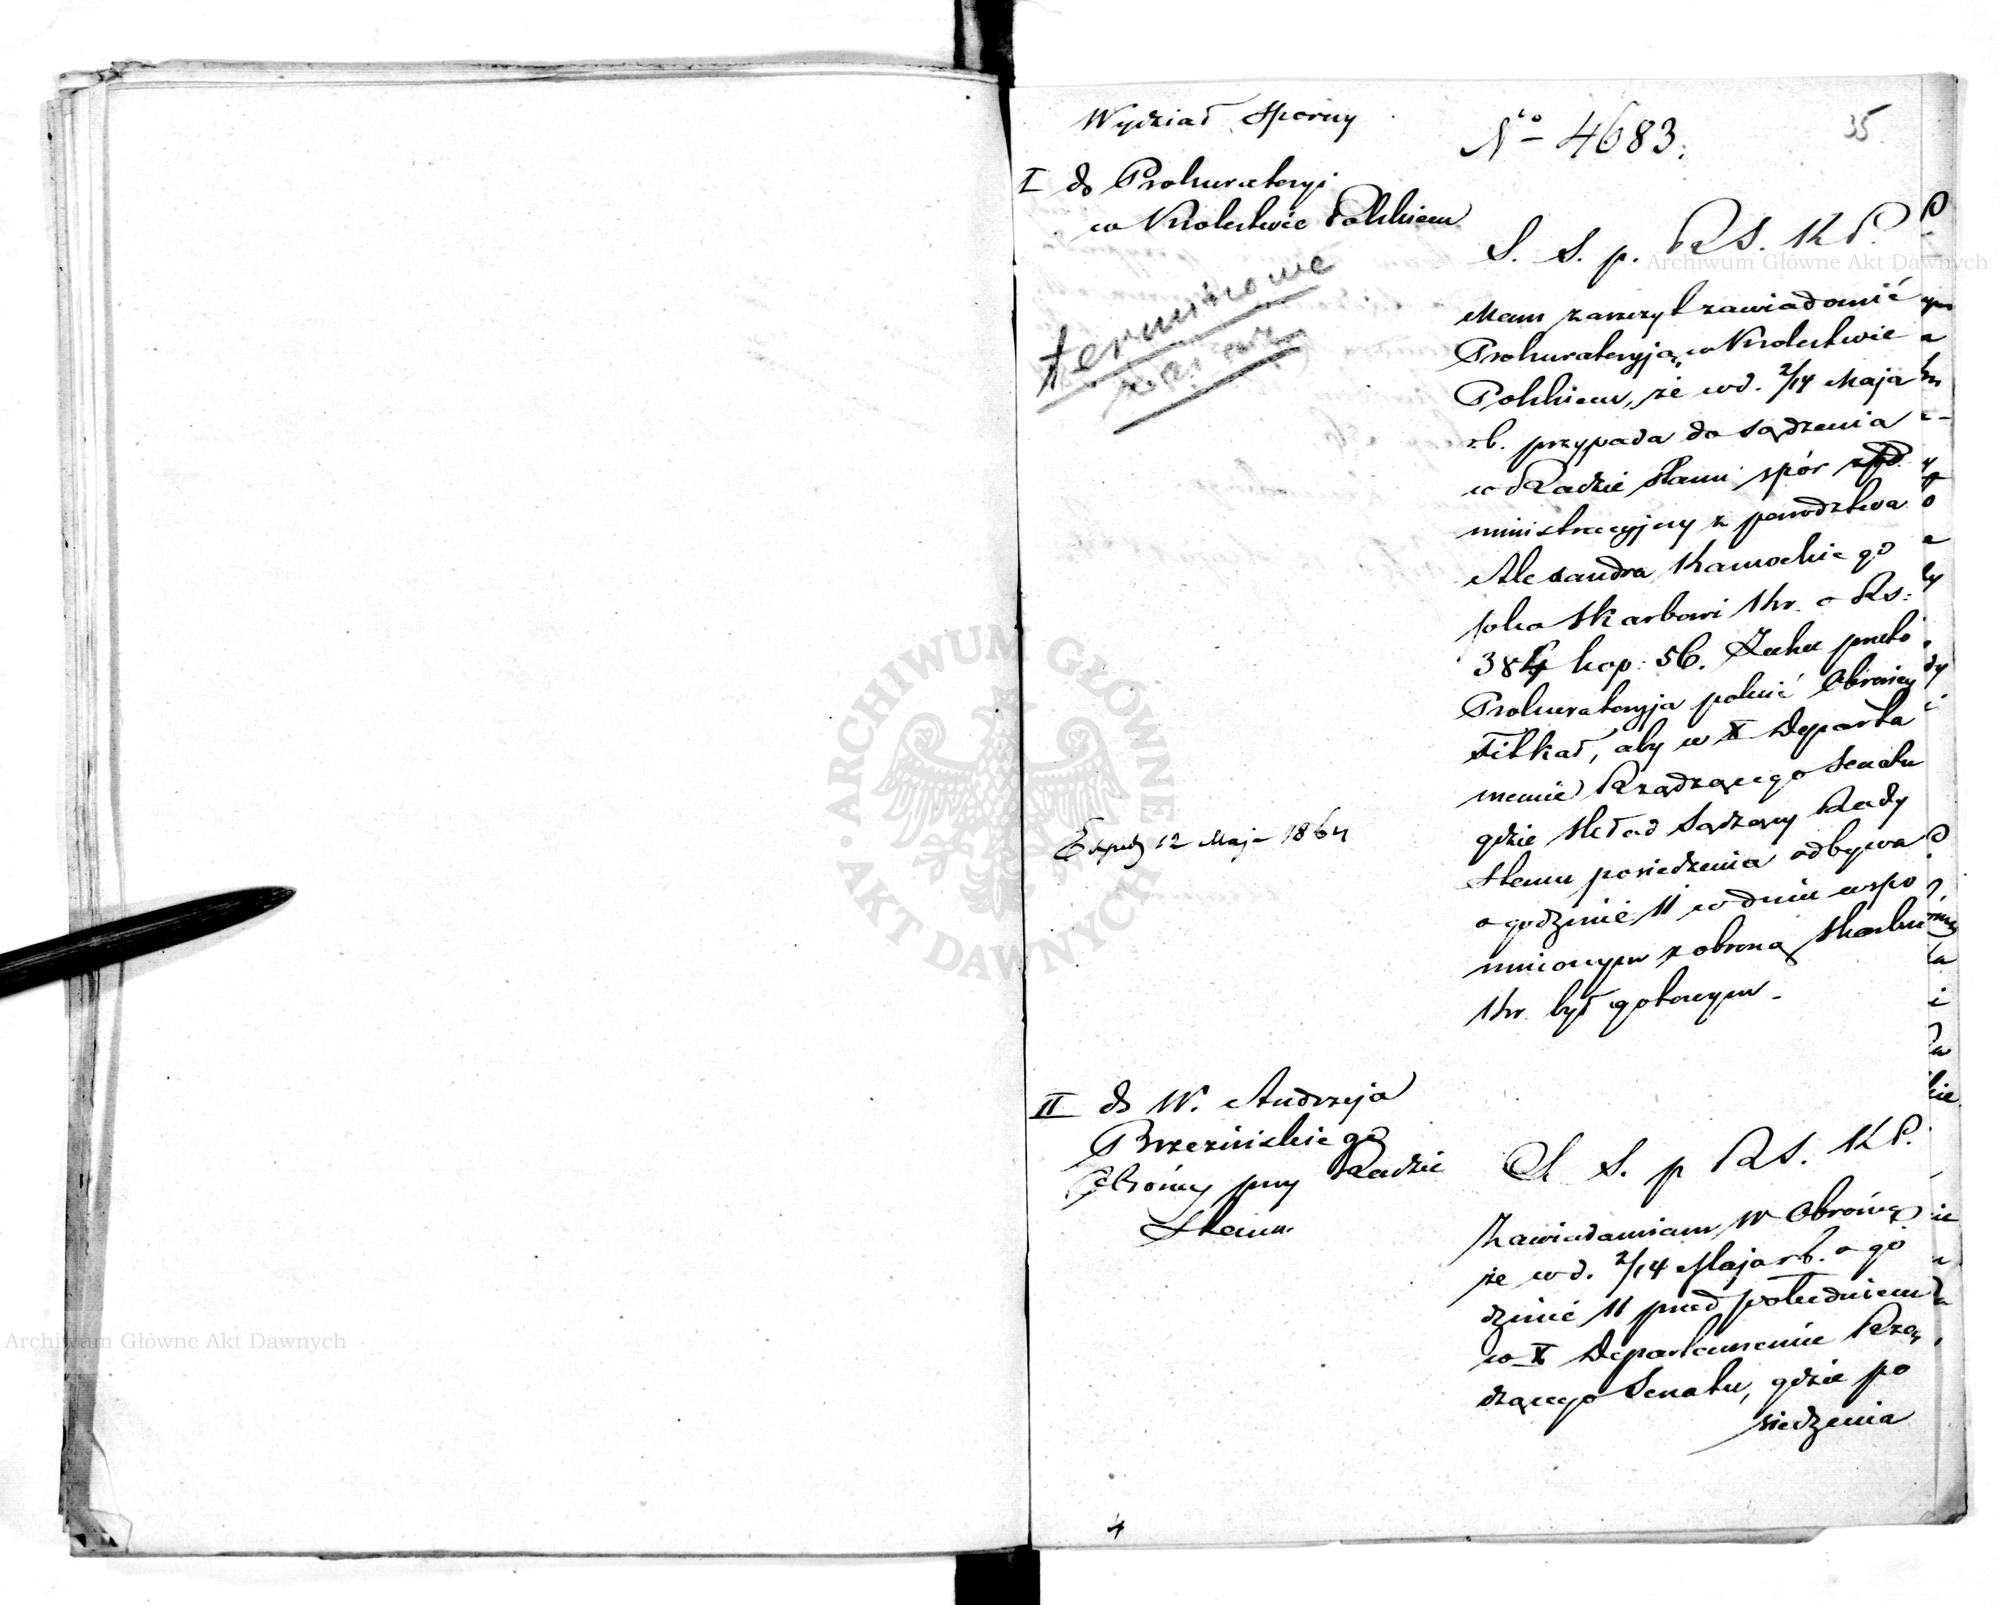 Wydział Sporny
No 4683.
35
I do Prokuratoryi
w Królestwie Polskiem
terminowe
zaraz
S. S. p. RS. KP.
Mam zaszczyt zawiadomić
Prokuratoryją w Królestwie
Polskiem, że w d. 2/14 Maja
rb. przypada do sądzenia
w Radzie Stanu spór
ministracyjny z powództwa
Alexandra Kamockiego
Skarbowi Kr. o Rs.
384 kop. 56. Zechce przeto
Prokuratoryja polecić Obrońcy
aby w X Departa
mencie Rządzącego Senatu
gdzie skład Sądzący Rady
Stanu posiedzenia odbywa
o godzinie 11 w dniu wspo
mnionym z obroną Skarbu
Kr. był gotowym.
Exped 12 Maja 1864
II do W. Andrzeja
Brzezińskiego
Obrońcy przy Radzie
Stanu
S. S. p RS. KP.
Zawiadamiam W Obrońcę
że w d. 2/14 Maja rb. o go
dzinie 11 przed południem
w X Departamencie Rzą
dzącego Senatu, gdzie po
siedzenia
ARCHIWUM GŁÓWNE AKT DAWNYCH
Archiwum Główne Akt Dawnych
Archiwum Główne Akt Dawnych